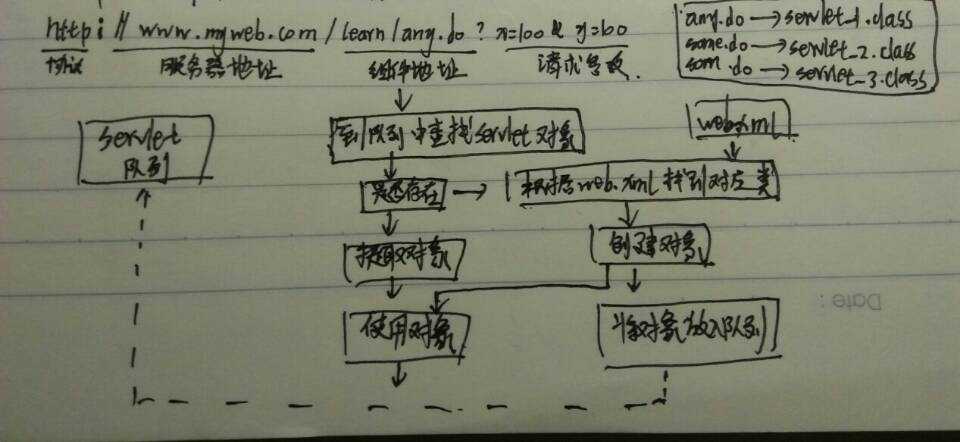 http://www.myweb.com/learn/any.do?x=100&y=100
协议 服务器地址 组件地址 请求参数
any.do→servlet_1.class
some.do→servlet_2.class
som.do→servlet_3.class
servlet
队列
到队列中查找servlet对象
web.xml
是否存在
根据web.xml找到对应类
提取对象
创建对象
使用对象
将对象放入队列
Date: